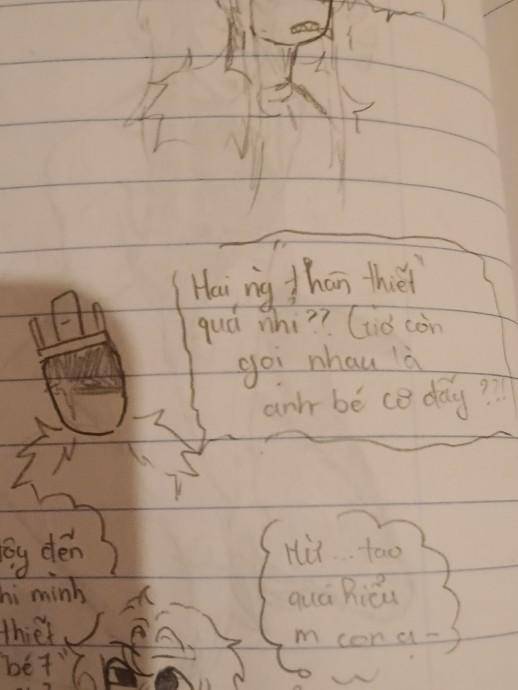 Hai ng "thân thiết"
quá nhỉ?? Giờ còn
gọi nhau là
anh bé cơ đấy??!
đến
mình
thiết
bé
Hừ... tao
quá hiểu
m con ạ-